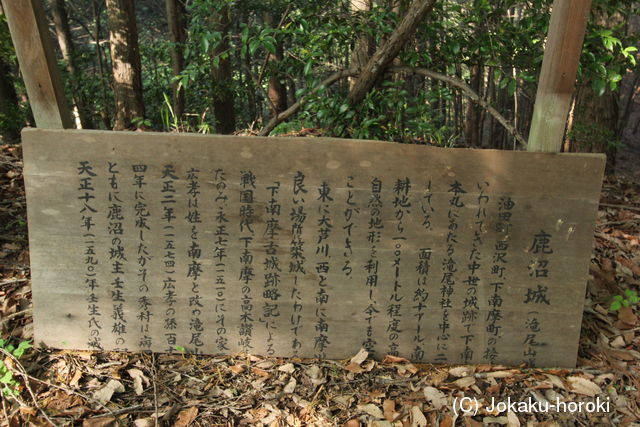 鹿沼城(滝尾山
油田町、西沢町、下南摩町の
いわれてきた中世の城跡で下南
本丸にあたる滝尾神社を中心に二
している。面積は約十アール、南
耕地から一〇〇メートル程度の高
自然の地形を利用し、今でも空
ことができる。
東に大芦川、西と南に南摩川
良い場所に築城したわけであ
「下南摩古城跡略記」による
戦国時代、下南摩の高木讃岐
たのみ、永正七年(一五一〇)にその家
広孝は姓を南摩と改め滝尾山
天正二年(一五七四)広孝の孫百
四年に完成したがその秀村は病
ともに鹿沼の城主壬生義雄の
天正十八年(一五九〇)年壬生氏の滅
(C) Jokaku-horoki